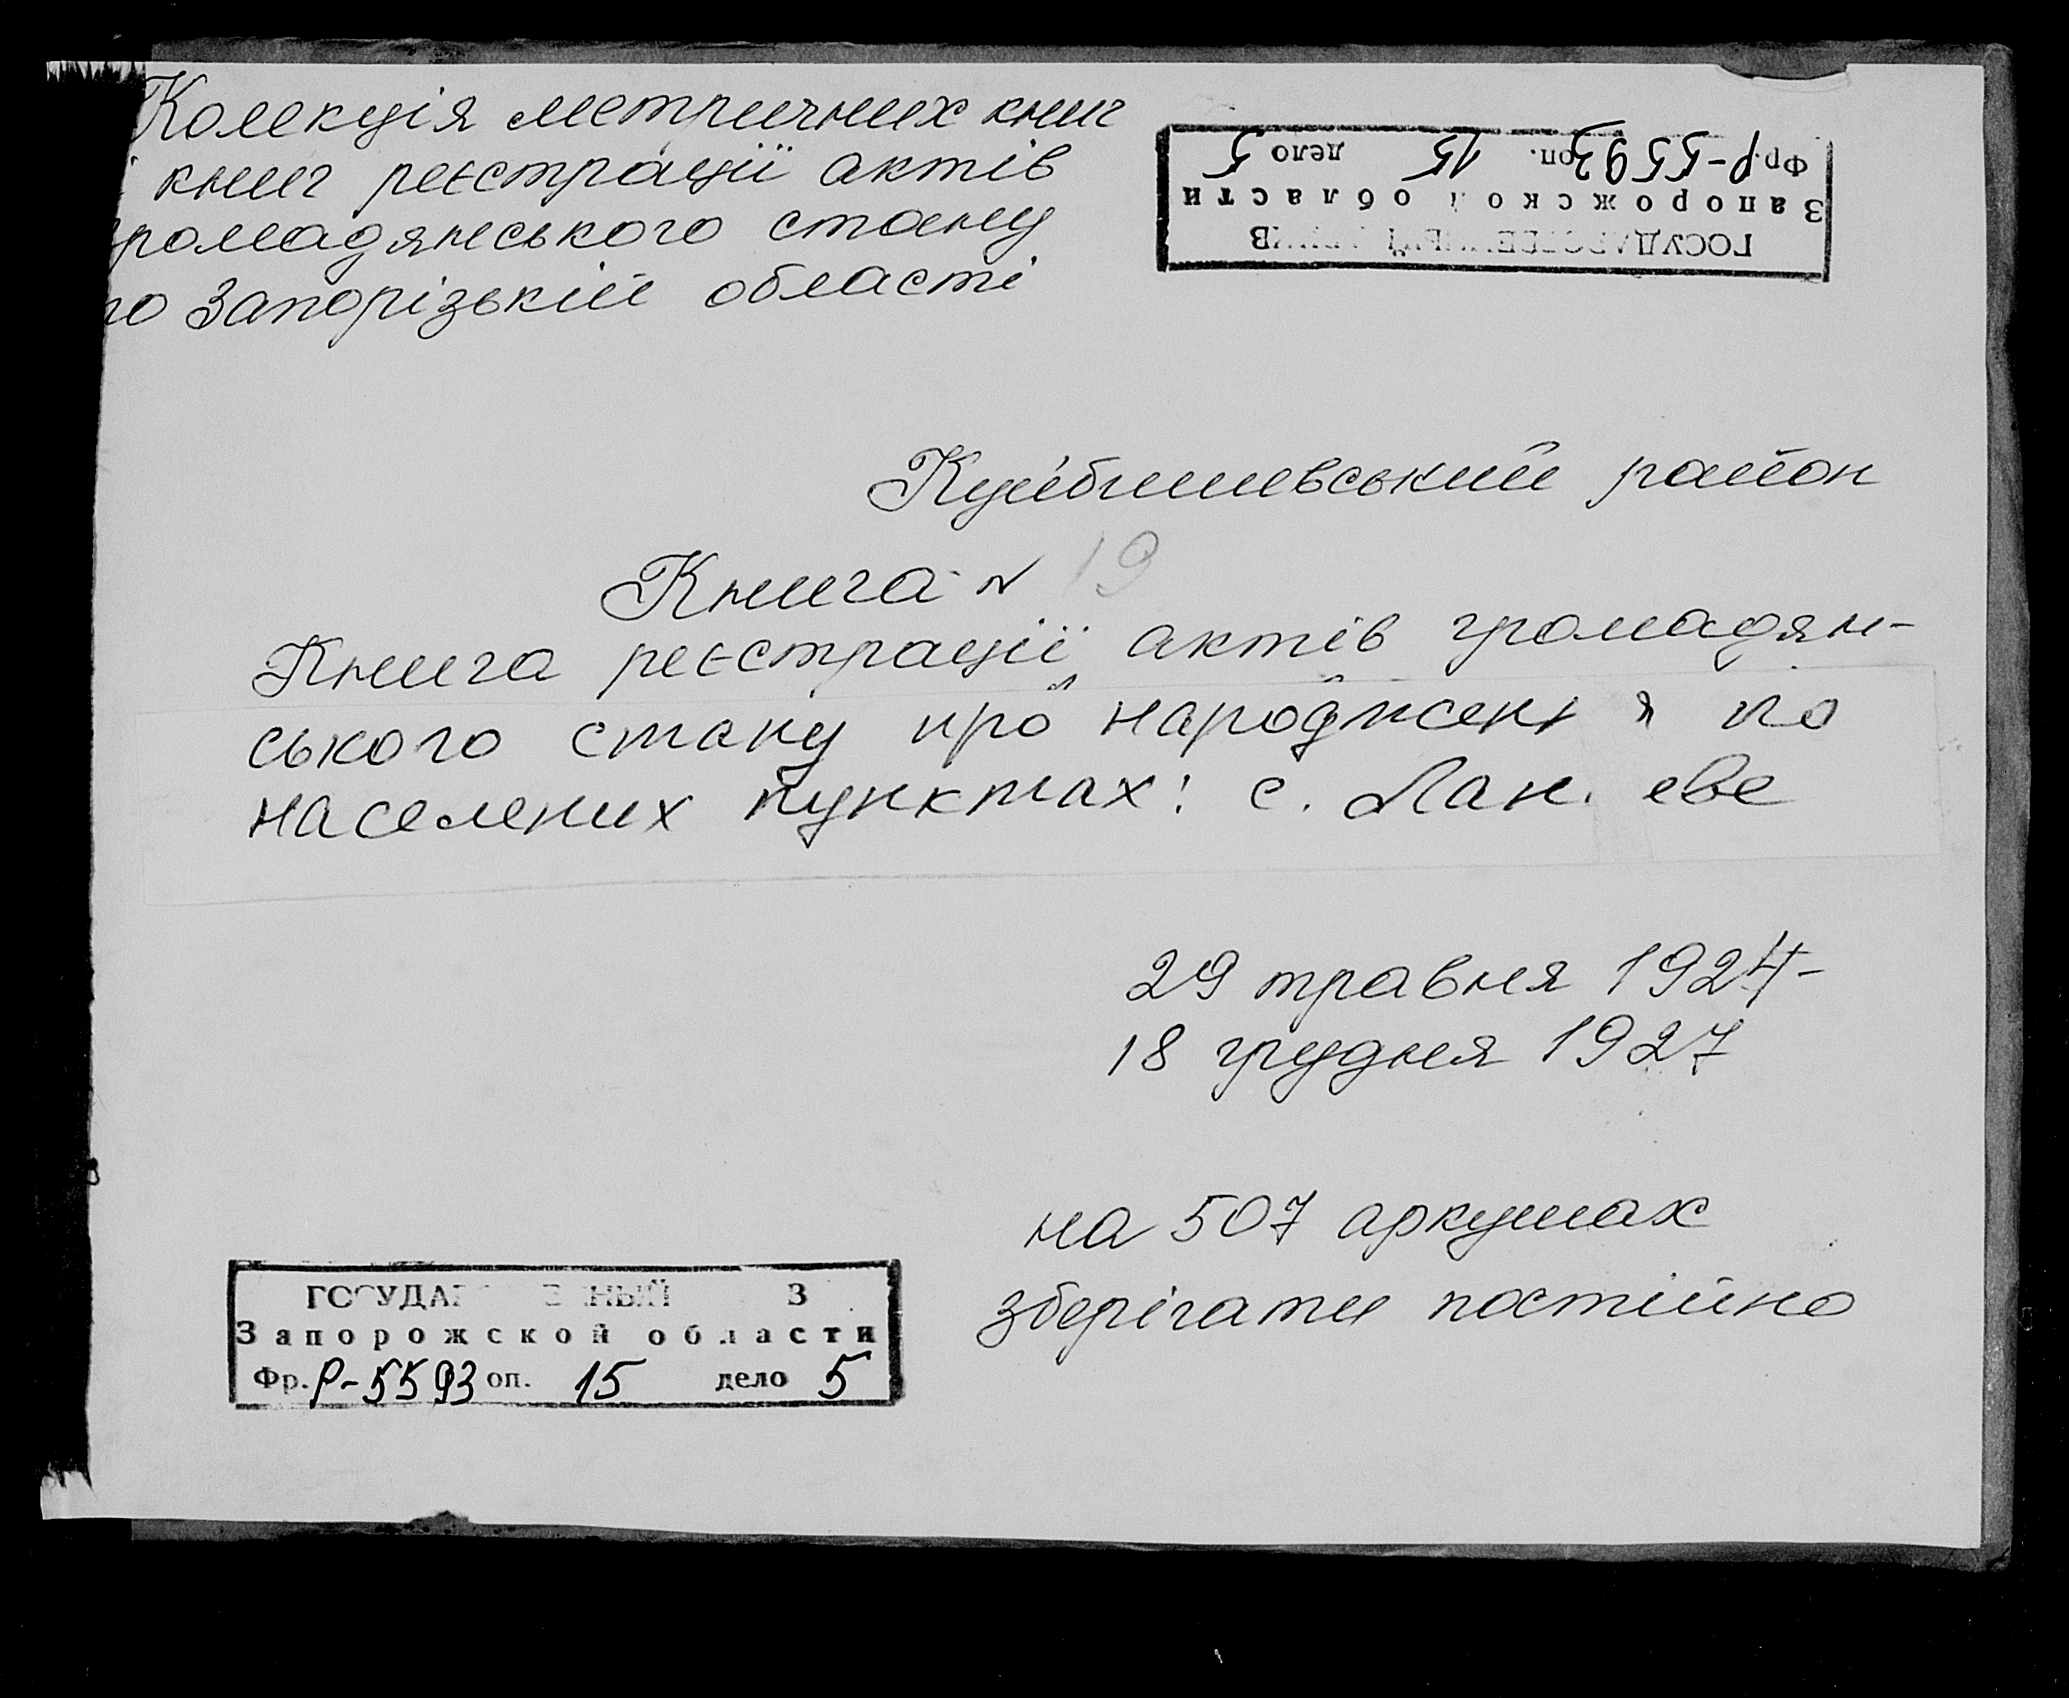 Колекція метричних книг
і книг реєстрації актів
громадянського стану
по Запорізькій області
Фр. Р-5593 оп. 15 дело 5
Запорожской области
Куйбишевський район
Книга N 19
Книга реєстрації актів громадян-
ського стану про народження по
населених пунктах: с.
29 травня 1924-
18 грудня 1927
на 507 аркушах
зберігати постійно
Запорожской области
Фр. Р-5593 оп. 15 дело 5